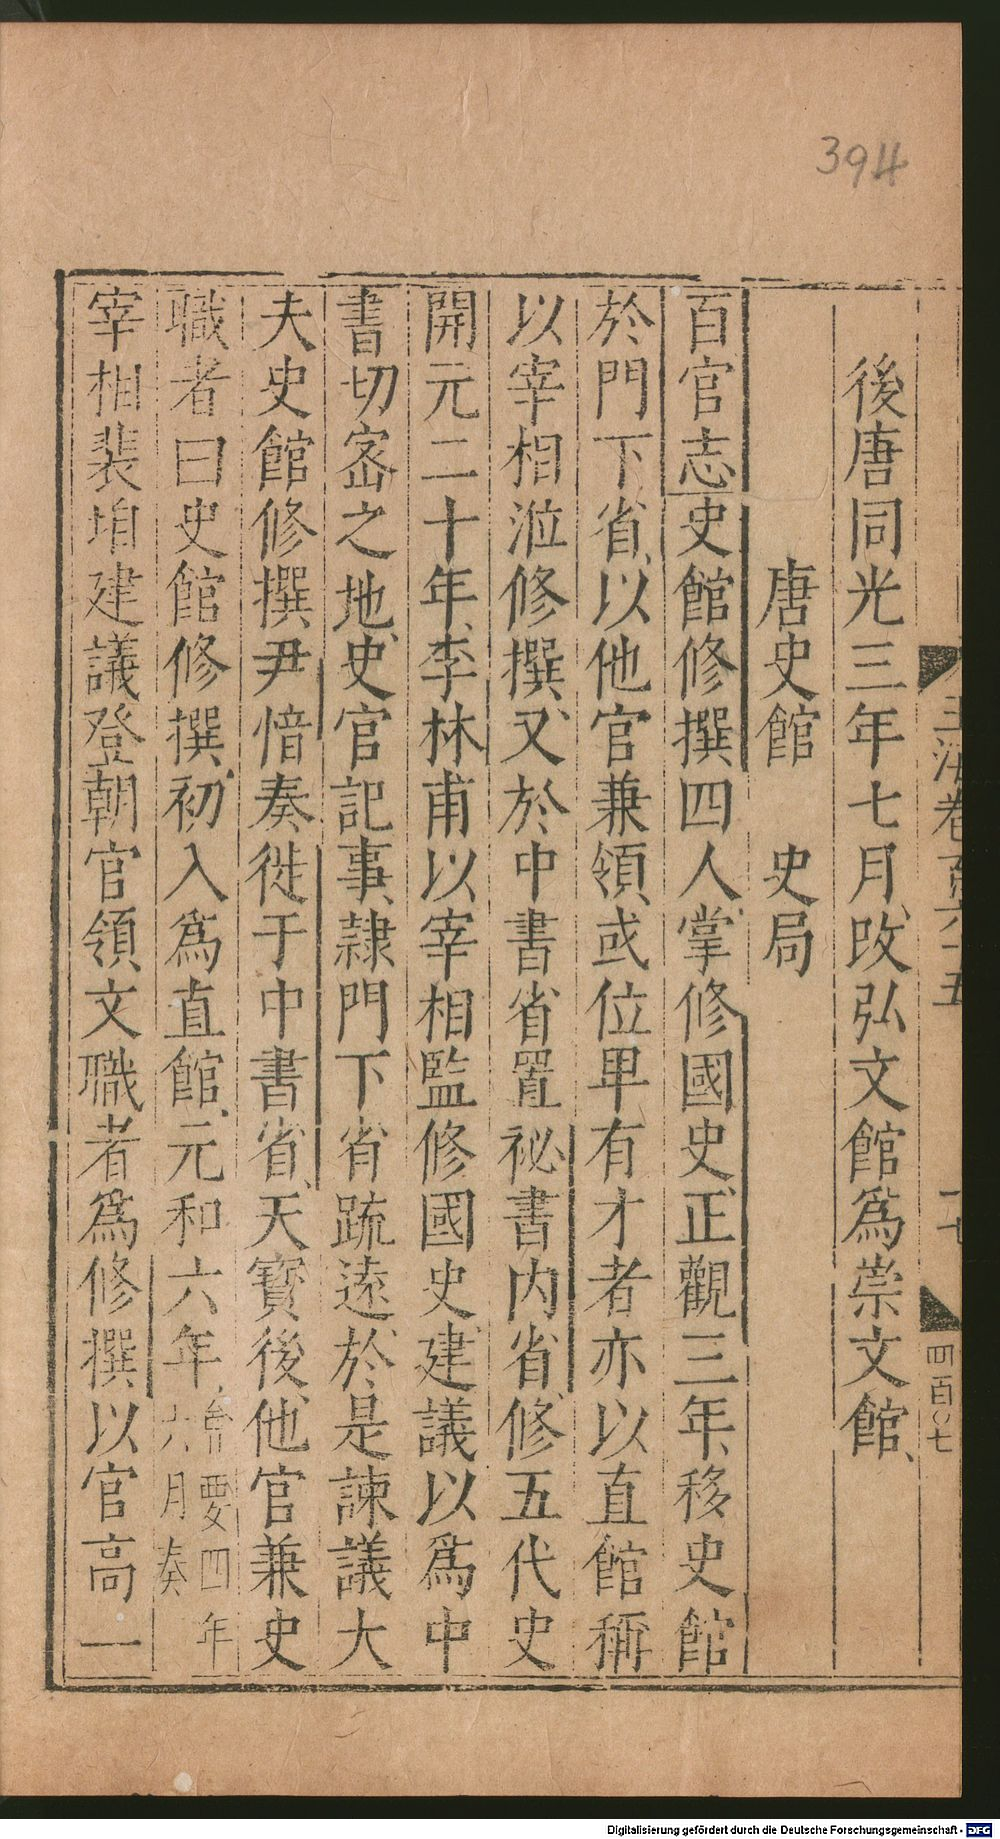 394
後唐同光三年七月改弘文館爲崇文館
唐史館　史局
百官志史館修撰四人掌修國史正觀三年移史館
於門下省以他官兼領或位卑有才者亦以直館稱
以宰相涖修撰又於中書省置祕書内省修五代史
開元二十年李林甫以宰相監修國史建議以爲中
書切宻之地史官記事隷門下省疏逺於是諫議大
夫史館修撰尹愔奏徙于中書省天寳後他官兼史
職者曰史館修撰初入爲直館元和六年會要四年六月奏
宰相裴垍建議登朝官領文職者爲修撰以官高一
玉海卷百六十五
十七
四百〇七
Digitalisierung gefördert durch die Deutsche Forschungsgemeinschaft - DFG